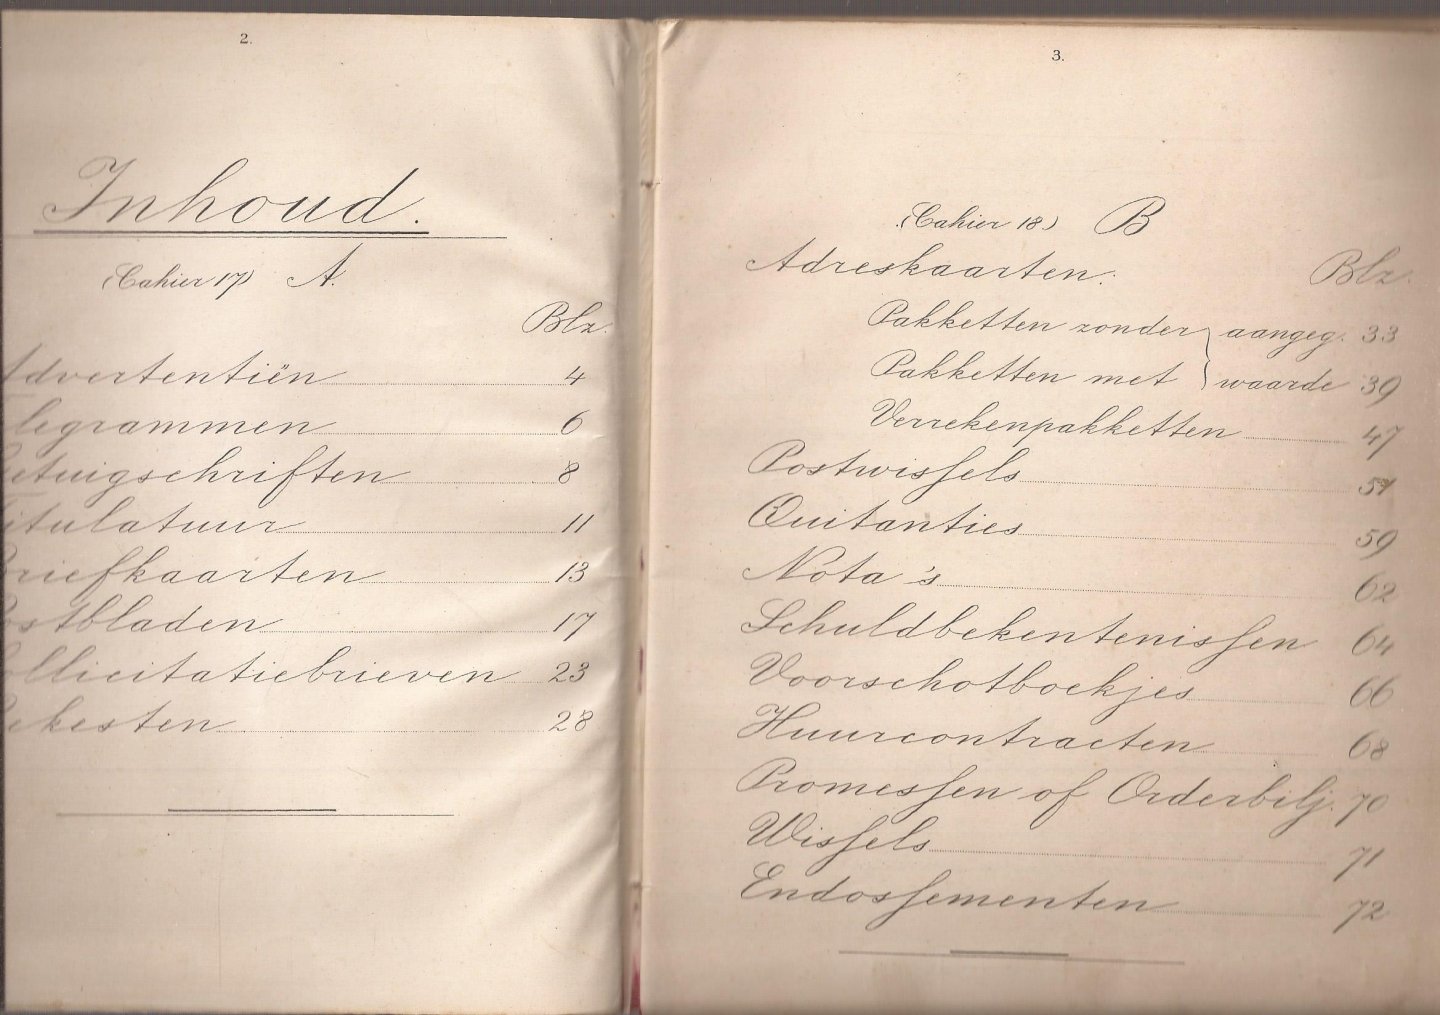 2.
Inhoud.
(Cahier 17) A.
Blz.
Advertentiën 4
legrammen 6
etuigschriften 8
itulatuur 11
riefkaarten 13
ostbladen 17
ollicitatiebrieven 23
ekesten 28
3.
(Cahier 18.) B
Adreskaarten: Blz.
Pakketten zonder } aangeg. 33
Pakketten met } waarde 39
Verrekenpakketten 47
Postwissels
Quitanties 59
Nota's 62
Schuldbekentenissen 64
Voorschotboekjes 66
Huurcontracten 68
Promessen of Orderbilj. 70
Wissels 71
Endossementen 72